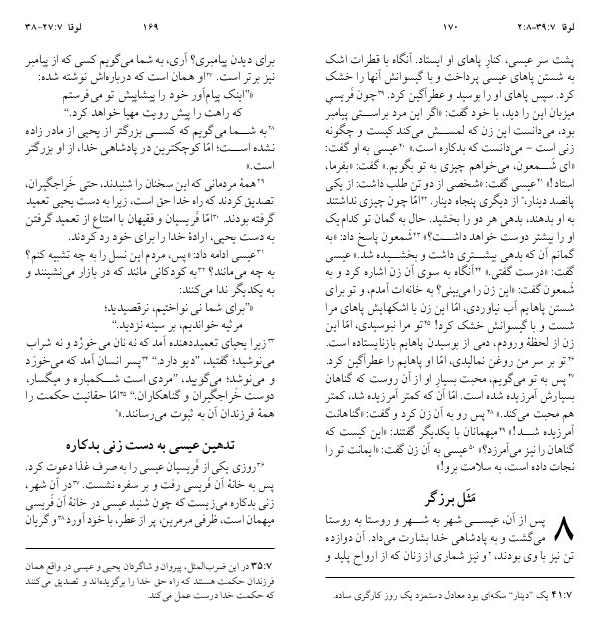 لوقا ۷:‏۲۷-۳۸
۱۶۹
برای دیدن پیامبری؟ آری، به شما می‌گویم کسی که از پیامبر
نیز برتر است. ۲۷او همان است که درباره‌اش نوشته شده:
«”اینک پیام‌آور خود را پیشاپیش تو می‌فرستم
که راهت را پیش رویت مهیا خواهد کرد.“
۲۸به شما می‌گویم که کسی بزرگتر از یحیی از مادر زاده
نشده است؛ امّا کوچکترین در پادشاهی خدا، از او بزرگتر
است.»
۲۹همهٔ مردمانی که این سخنان را شنیدند، حتی خَراجگیران،
تصدیق کردند که راه خدا حق است، زیرا به دست یحیی تعمید
گرفته بودند. ۳۰امّا فَریسیان و فقیهان با امتناع از تعمید گرفتن
به دست یحیی، ارادهٔ خدا را برای خود رد کردند.
۳۱عیسی ادامه داد: «پس، مردم این نسل را به چه تشبیه کنم؟
به چه می‌مانند؟ ۳۲به کودکانی مانند که در بازار می‌نشینند و
به یکدیگر ندا می‌کنند:
«”برای شما نی نواختیم، نرقصیدید؛
مرثیه خواندیم، بر سینه نزدید.“
۳۳زیرا یحیای تعمیددهنده آمد که نه نان می‌خورْد و نه شراب
می‌نوشید؛ گفتید، ”دیو دارد.“ ۳۴پسر انسان آمد که می‌خورَد
و می‌نوشد؛ می‌گویید، ”مردی است شکمباره و میگسار،
دوست خَراجگیران و گناهکاران.“ ۳۵امّا حقانیت حکمت را
همهٔ فرزندان آن به ثبوت می‌رسانند.»*
تدهین عیسی به دست زنی بدکاره
۳۶روزی یکی از فَریسیان عیسی را به صرف غذا دعوت کرد.
پس به خانهٔ آن فَریسی رفت و بر سفره نشست. ۳۷در آن شهر،
زنی بدکاره می‌زیست که چون شنید عیسی در خانهٔ آن فَریسی
میهمان است، ظرفی مرمرین، پر از عطر، با خود آورد ۳۸و گریان
۳۵:۷ در این ضرب‌المثل، پیروان و شاگردان یحیی و عیسی در واقع همان
فرزندان حکمت هستند که راه حق خدا را برگزیده‌اند و تصدیق می‌کنند
که حکمت خدا درست عمل می‌کند.
لوقا ۷:‏۳۹-۸:‏۲
۱۷۰
پشت سر عیسی، کنارِ پاهای او ایستاد. آنگاه با قطرات اشک
به شستن پاهای عیسی پرداخت و با گیسوانش آنها را خشک
کرد. سپس پاهای او را بوسید و عطرآگین کرد. ۳۹چون فَریسیِ
میزبان این را دید، با خود گفت: «اگر این مرد براستی پیامبر
بود، می‌دانست این زن که لمسش می‌کند کیست و چگونه
زنی است – می‌دانست که بدکاره است.» ۴۰عیسی به او گفت:
«ای شَمعون، می‌خواهم چیزی به تو بگویم.» گفت: «بفرما،
استاد!» ۴۱عیسی گفت: «شخصی از دو تن طلب داشت: از یکی
پانصد دینار،* از دیگری پنجاه دینار. ۴۲امّا چون چیزی نداشتند
به او بدهند، بدهی هر دو را بخشید. حال به گمان تو کدام‌یک
او را بیشتر دوست خواهد داشت؟» ۴۳شَمعون پاسخ داد: «به
گمانم آن که بدهی بیشتری داشت و بخشیده شد.» عیسی
گفت: «درست گفتی.» ۴۴آنگاه به سوی آن زن اشاره کرد و به
شَمعون گفت: «این زن را می‌بینی؟ به خانه‌ات آمدم، و تو برای
شستن پاهایم آب نیاوردی، امّا این زن با اشکهایش پاهای مرا
شست و با گیسوانش خشک کرد! ۴۵تو مرا نبوسیدی، امّا این
زن از لحظهٔ ورودم، دمی از بوسیدن پاهایم بازنایستاده است.
۴۶تو بر سر من روغن نمالیدی، امّا او پاهایم را عطرآگین کرد.
۴۷پس به تو می‌گویم، محبت بسیارِ او از آن روست که گناهان
بسیارش آمرزیده شده است. امّا آن که کمتر آمرزیده شد، کمتر
هم محبت می‌کند.» ۴۸پس رو به آن زن کرد و گفت: «گناهانت
آمرزیده شد!» ۴۹میهمانان با یکدیگر گفتند: «این کیست که
گناهان را نیز می‌آمرزد؟» ۵۰عیسی به آن زن گفت: «ایمانت تو را
نجات داده است، به سلامت برو!»
مَثَل برزگر
۸ پس از آن، عیسی شهر به شهر و روستا به روستا
می‌گشت و به پادشاهی خدا بشارت می‌داد. آن دوازده
تن نیز با وی بودند، ۲و نیز شماری از زنان که از ارواح پلید و
۴۱:۷ یک ”دینار“ سکه‌ای بود معادل دستمزد یک روز کارگری ساده.